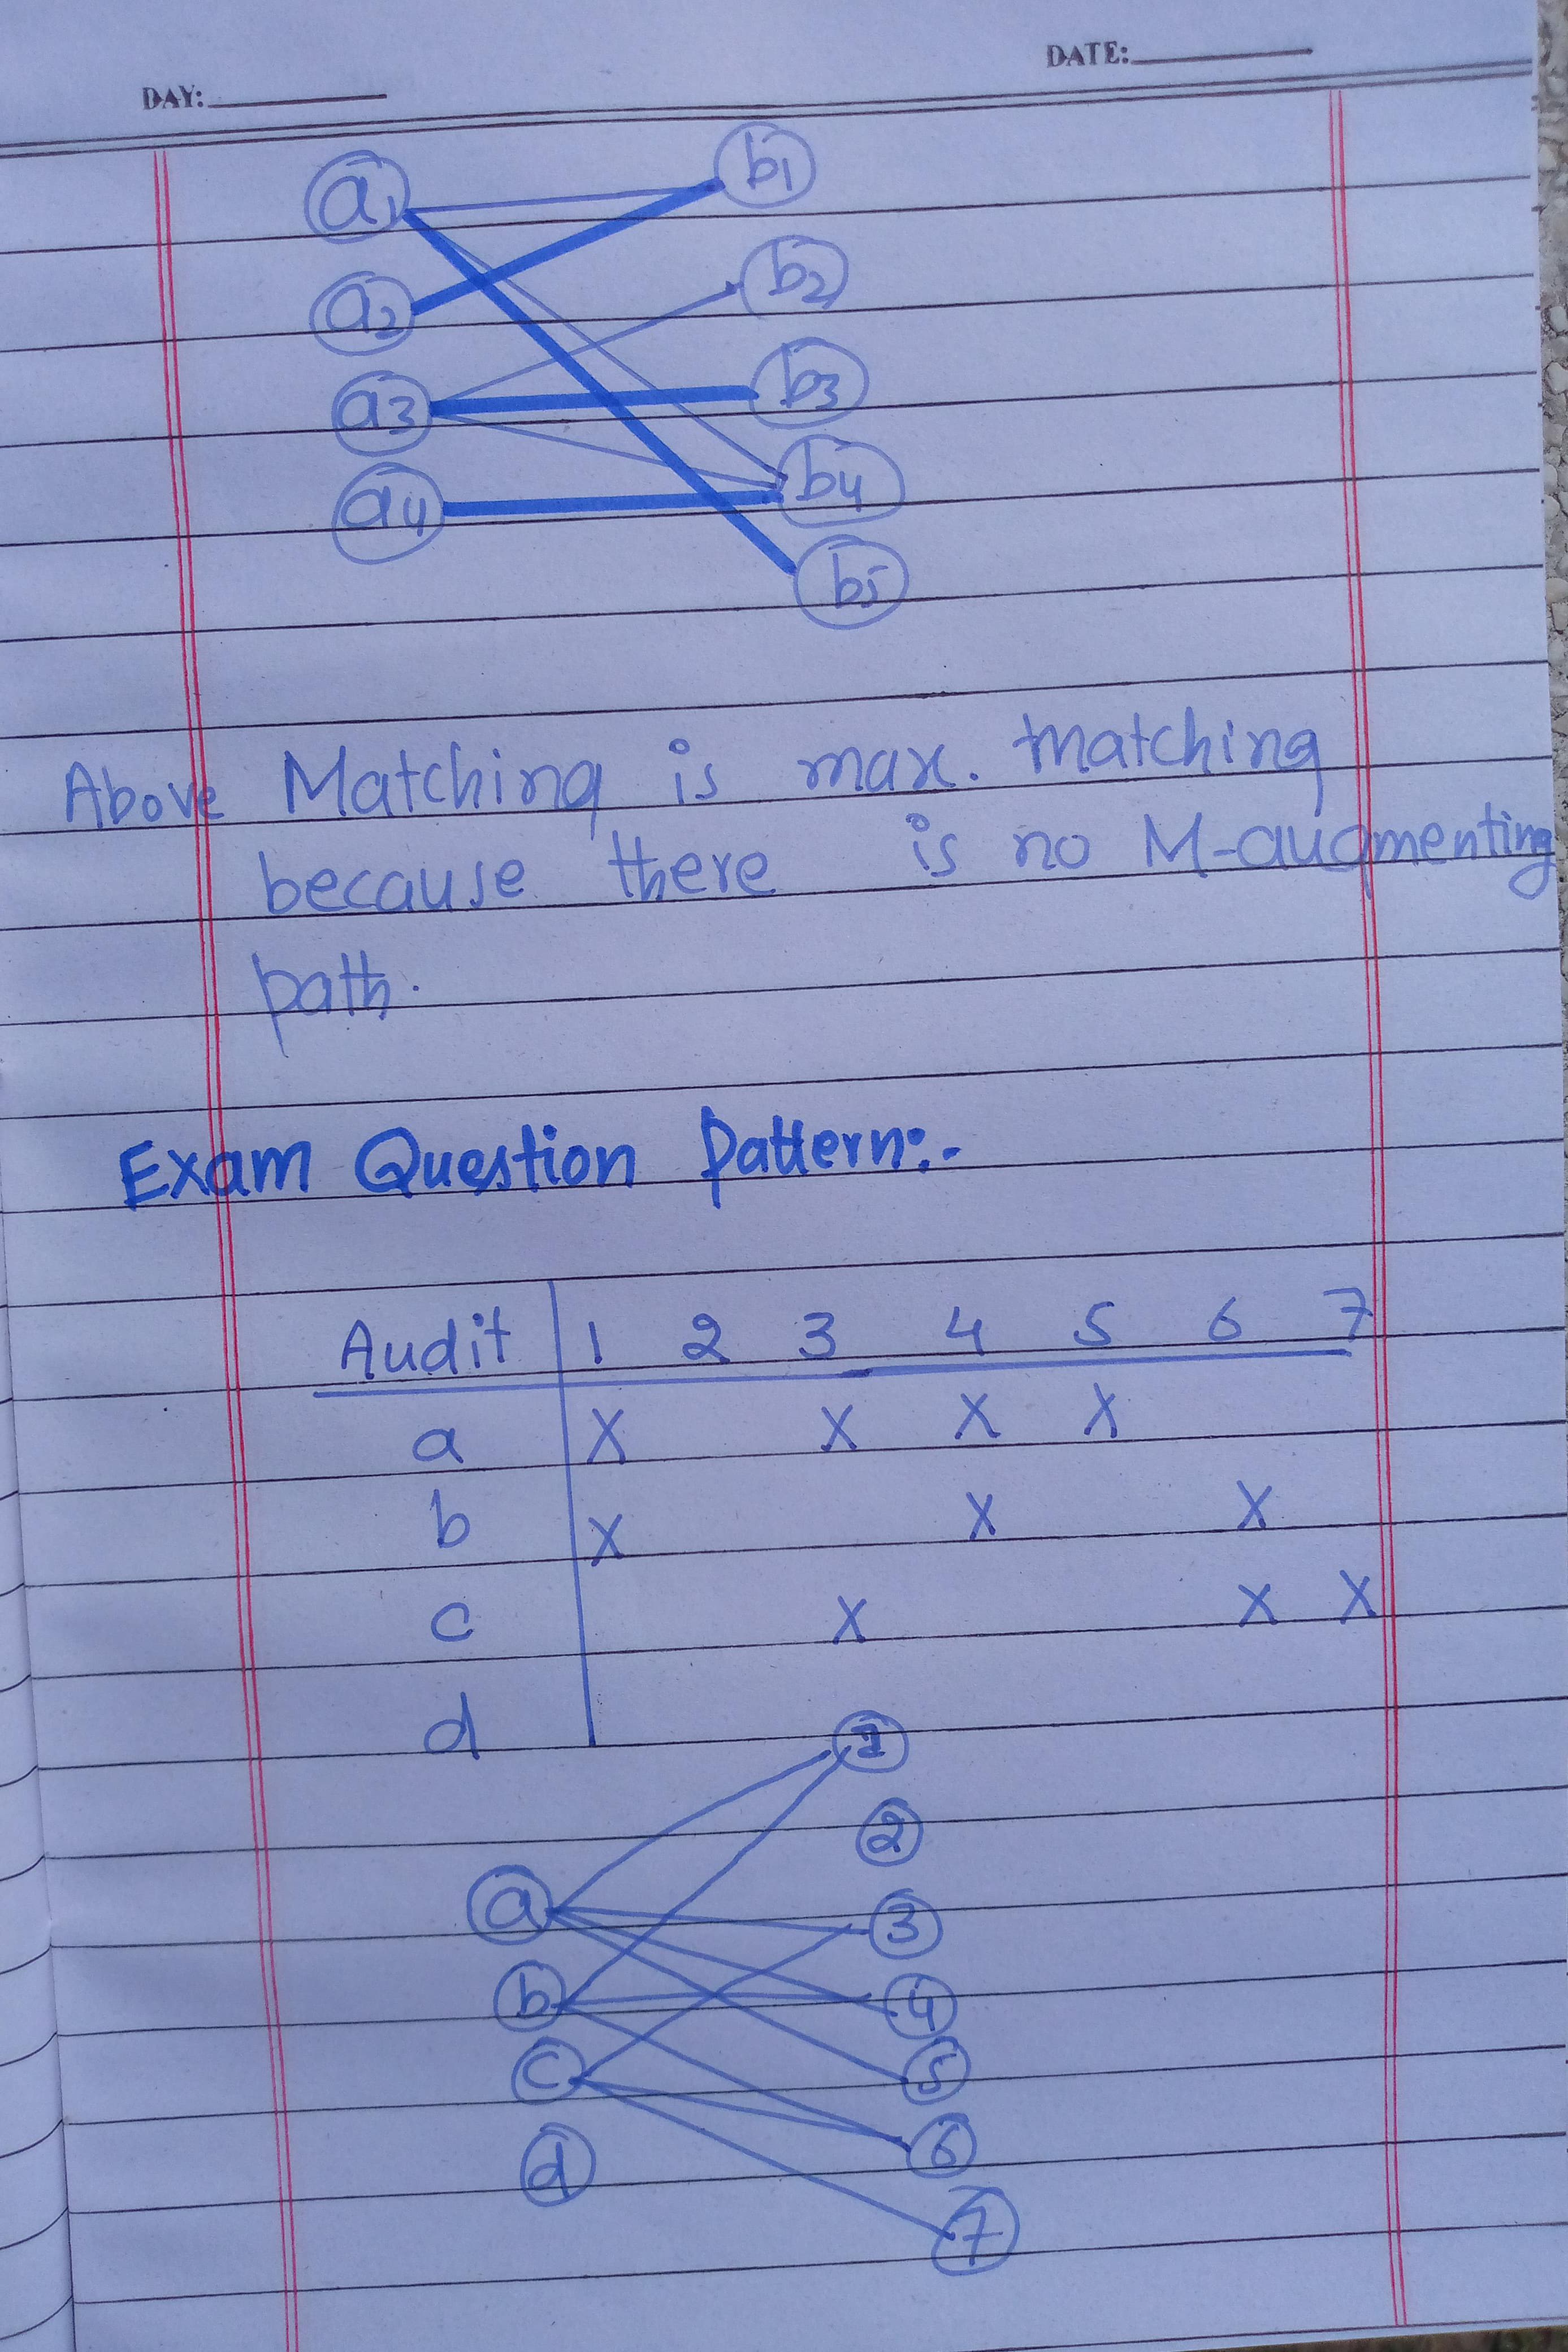 DAY: DATE:
a1 b1
a2 b2
a3 b3
a4 b4
b5
Above Matching is max. matching
because there is no M-augmenting
path.
Exam Question Pattern:-
Audit 1 2 3 4 5 6 7
a X X X X
b X X X
c X X X
d
1
2
a 3
b 4
c 5
d 6
7